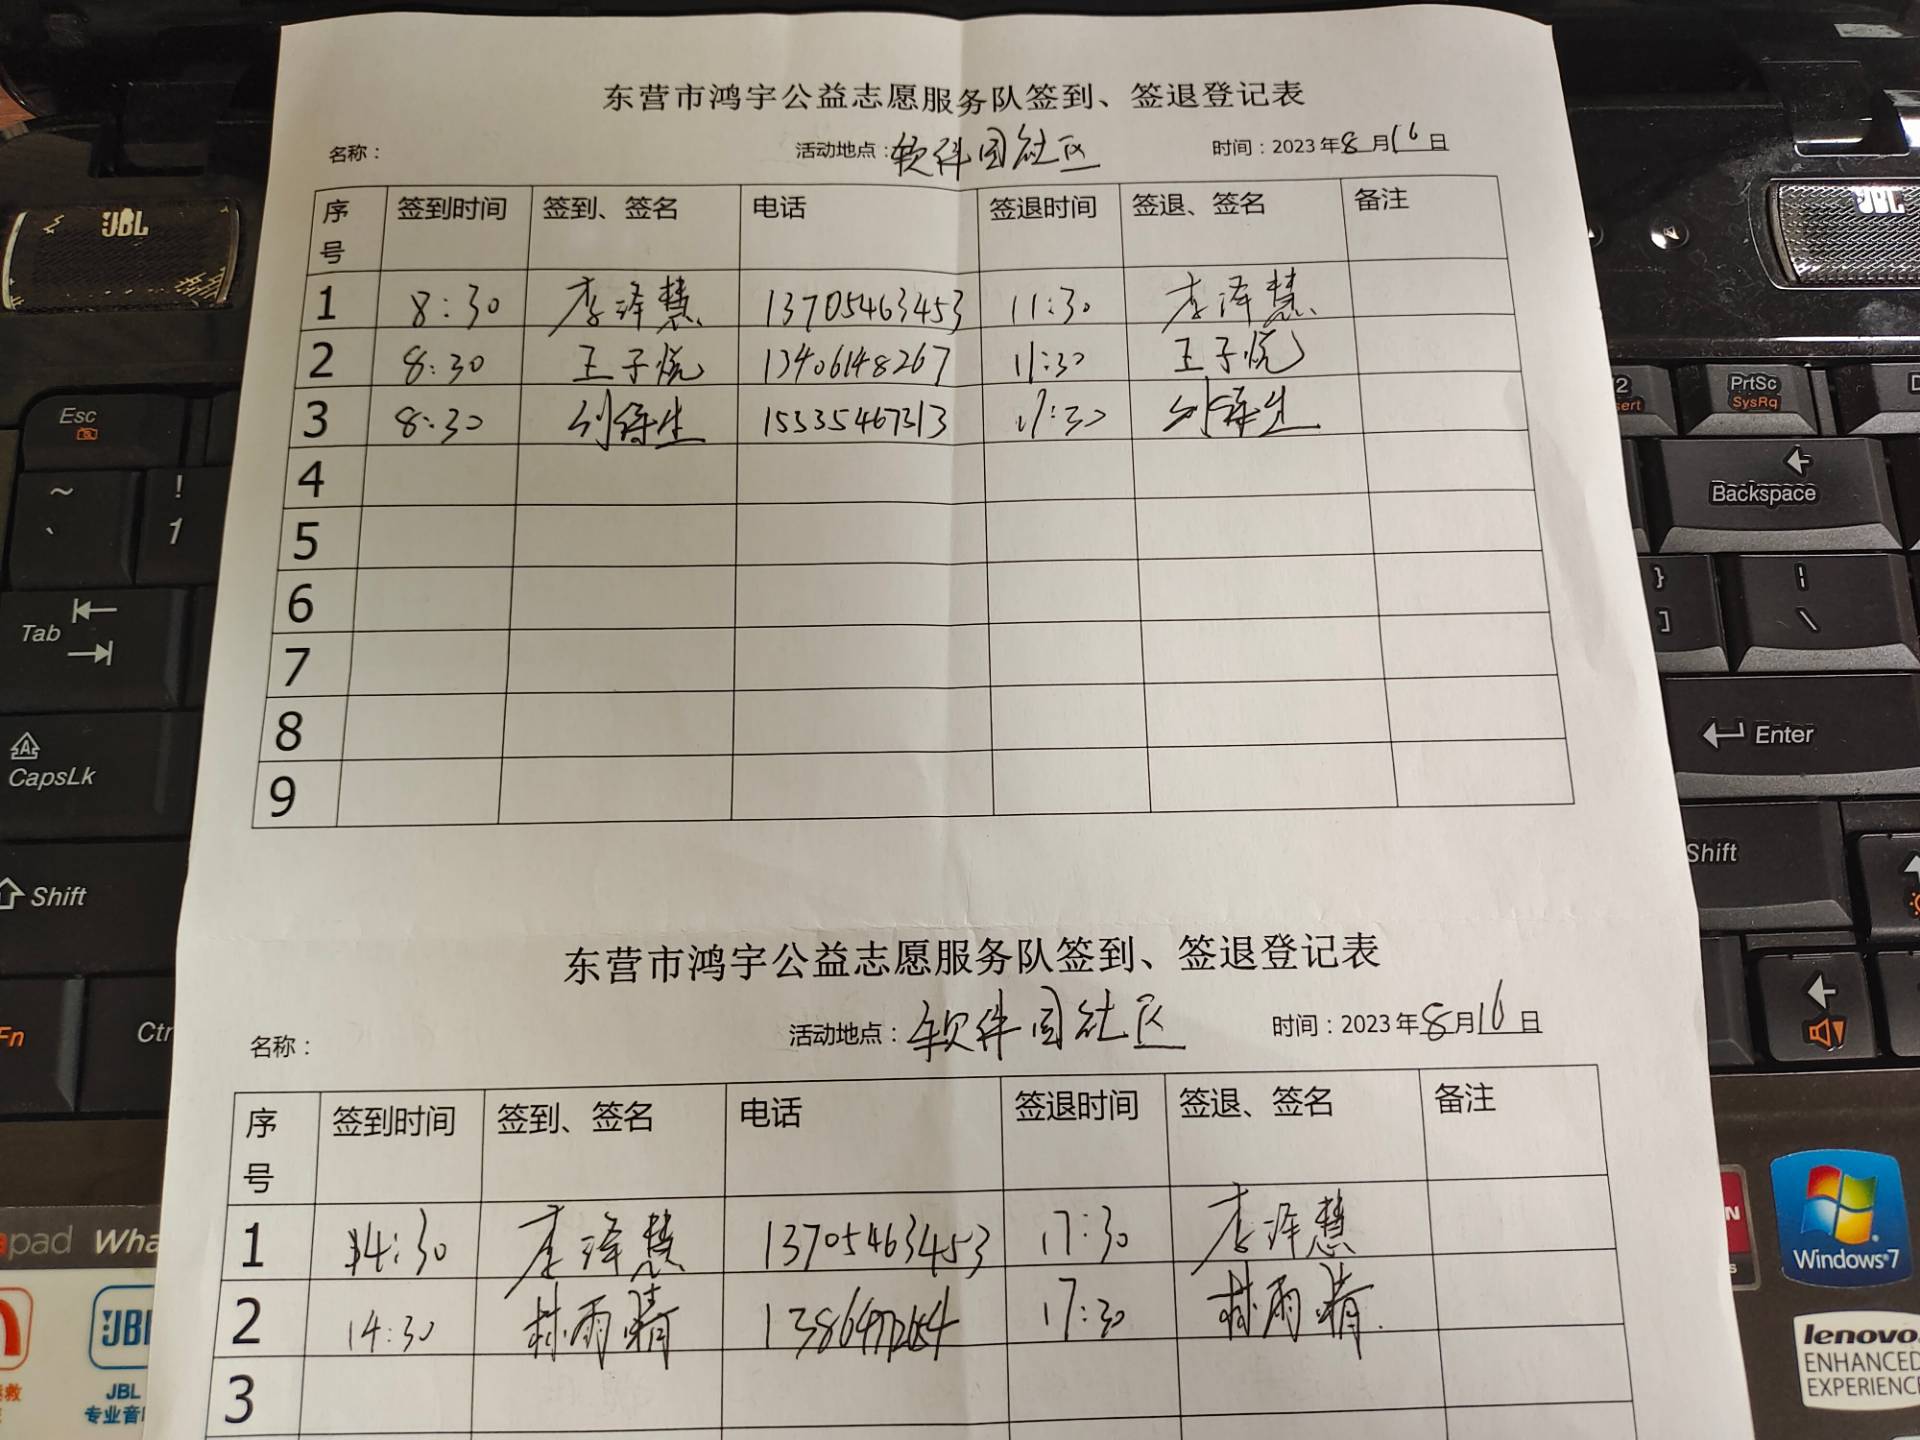 东营市鸿宇公益志愿服务队签到、签退登记表
名称： 活动地点：软件园社区 时间：2023年8月16日
序号 签到时间 签到、签名 电话 签退时间 签退、签名 备注
1 8:30 李泽慧 13705463453 11:30 李泽慧
2 8:30 王子悦 13406148267 11:30 王子悦
3 8:30 15335467313 11:30
4
5
6
7
8
9
东营市鸿宇公益志愿服务队签到、签退登记表
名称： 活动地点：软件园社区 时间：2023年8月16日
序号 签到时间 签到、签名 电话 签退时间 签退、签名 备注
1 14:30 李泽慧 13705463453 17:30 李泽慧
2 14:30 林雨晴 17:30 林雨晴
3
JBL
JBL
Esc
PrtSc
SysRq
~
`
!
1
Backspace
Tab
}
]
|
\
CapsLk
Enter
Shift
Shift
Fn
Ctr
Windows 7
JBL
JBL
专业音
lenovo
ENHANCED
EXPERIENCE